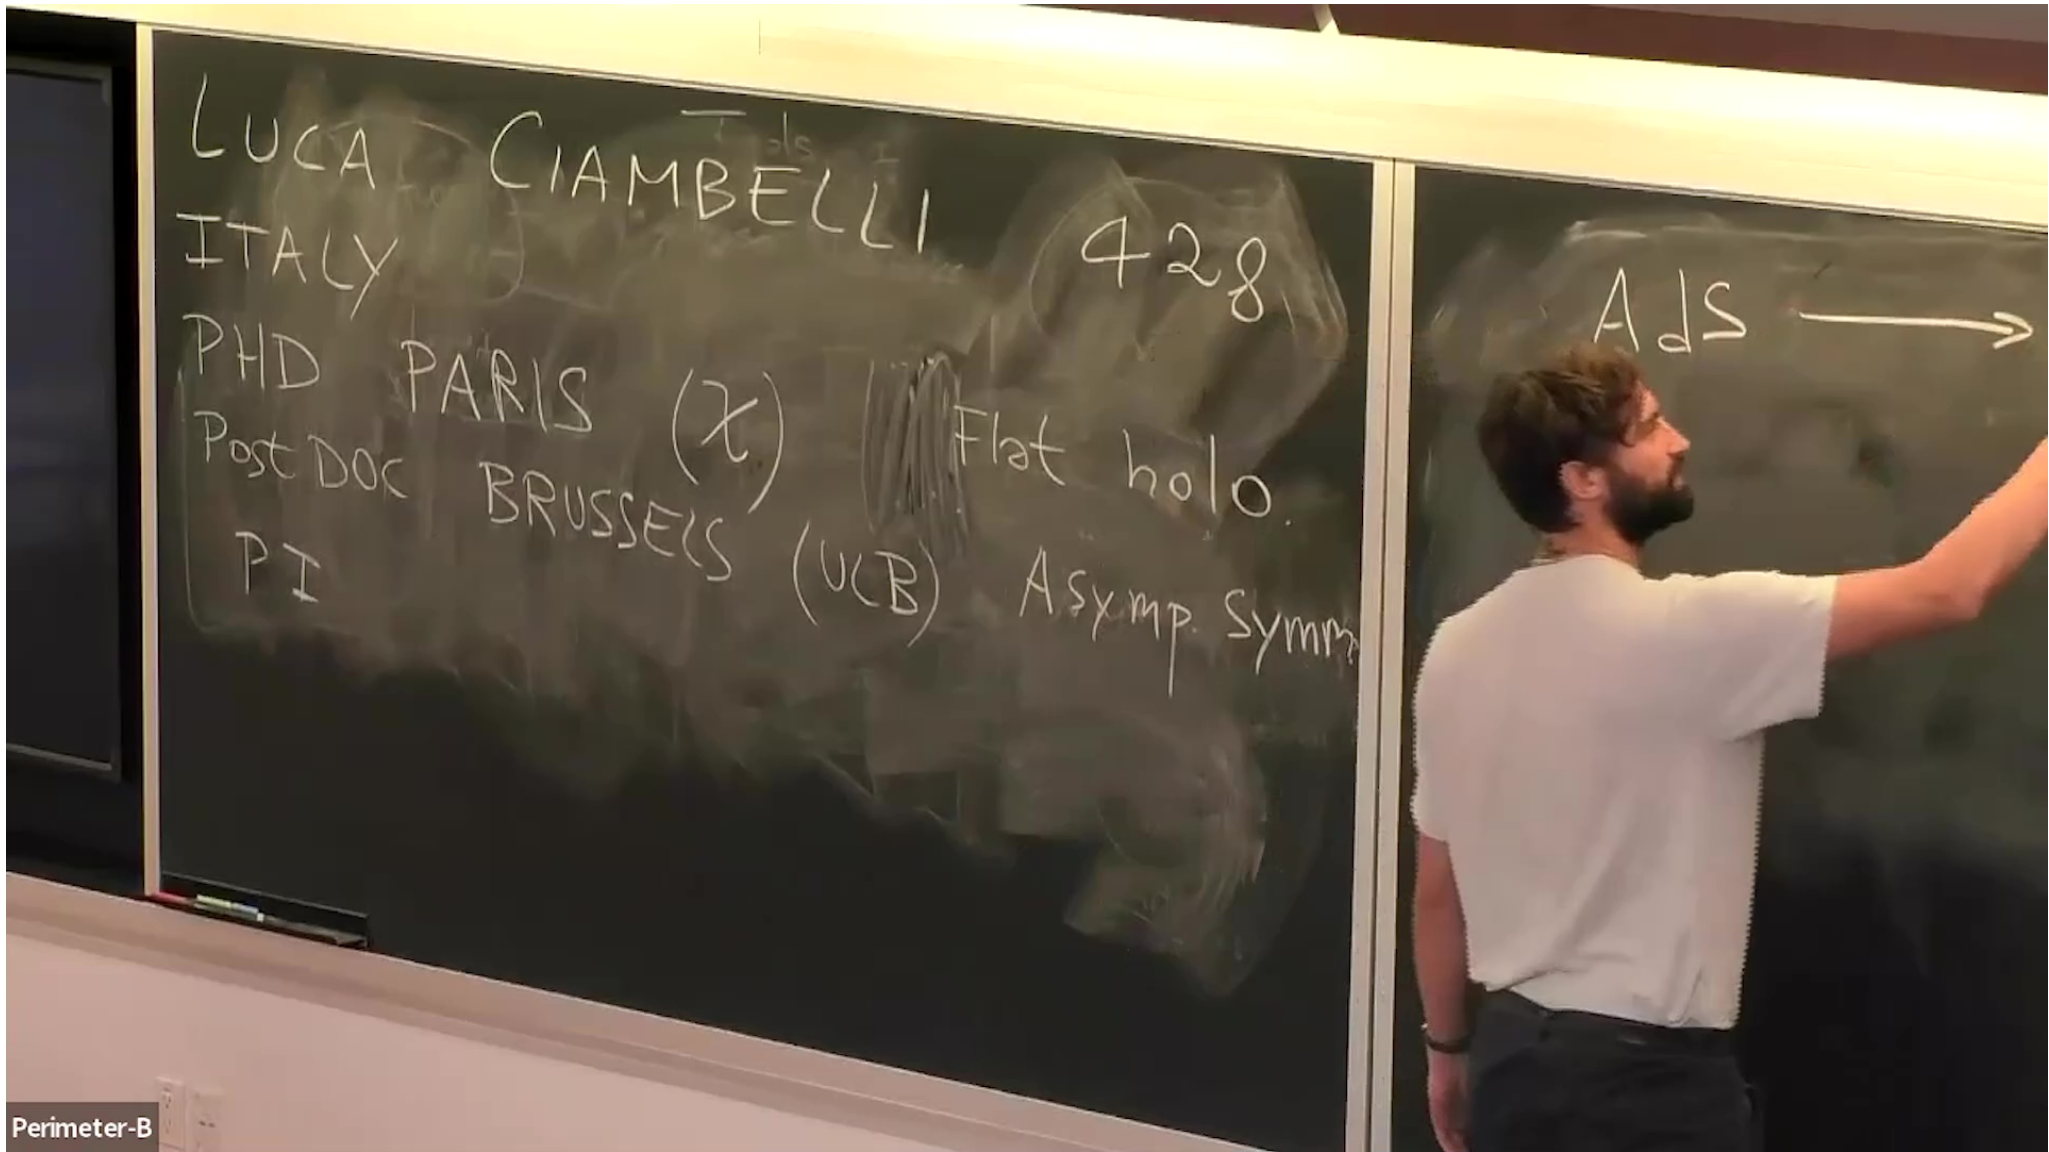 LUCA CIAMBELLI 428
ITALY
PHD PARIS (X) Flat holo.
PostDOC BRUSSELS (ULB) Asymp. Symm.
PI
AdS →
Perimeter-B